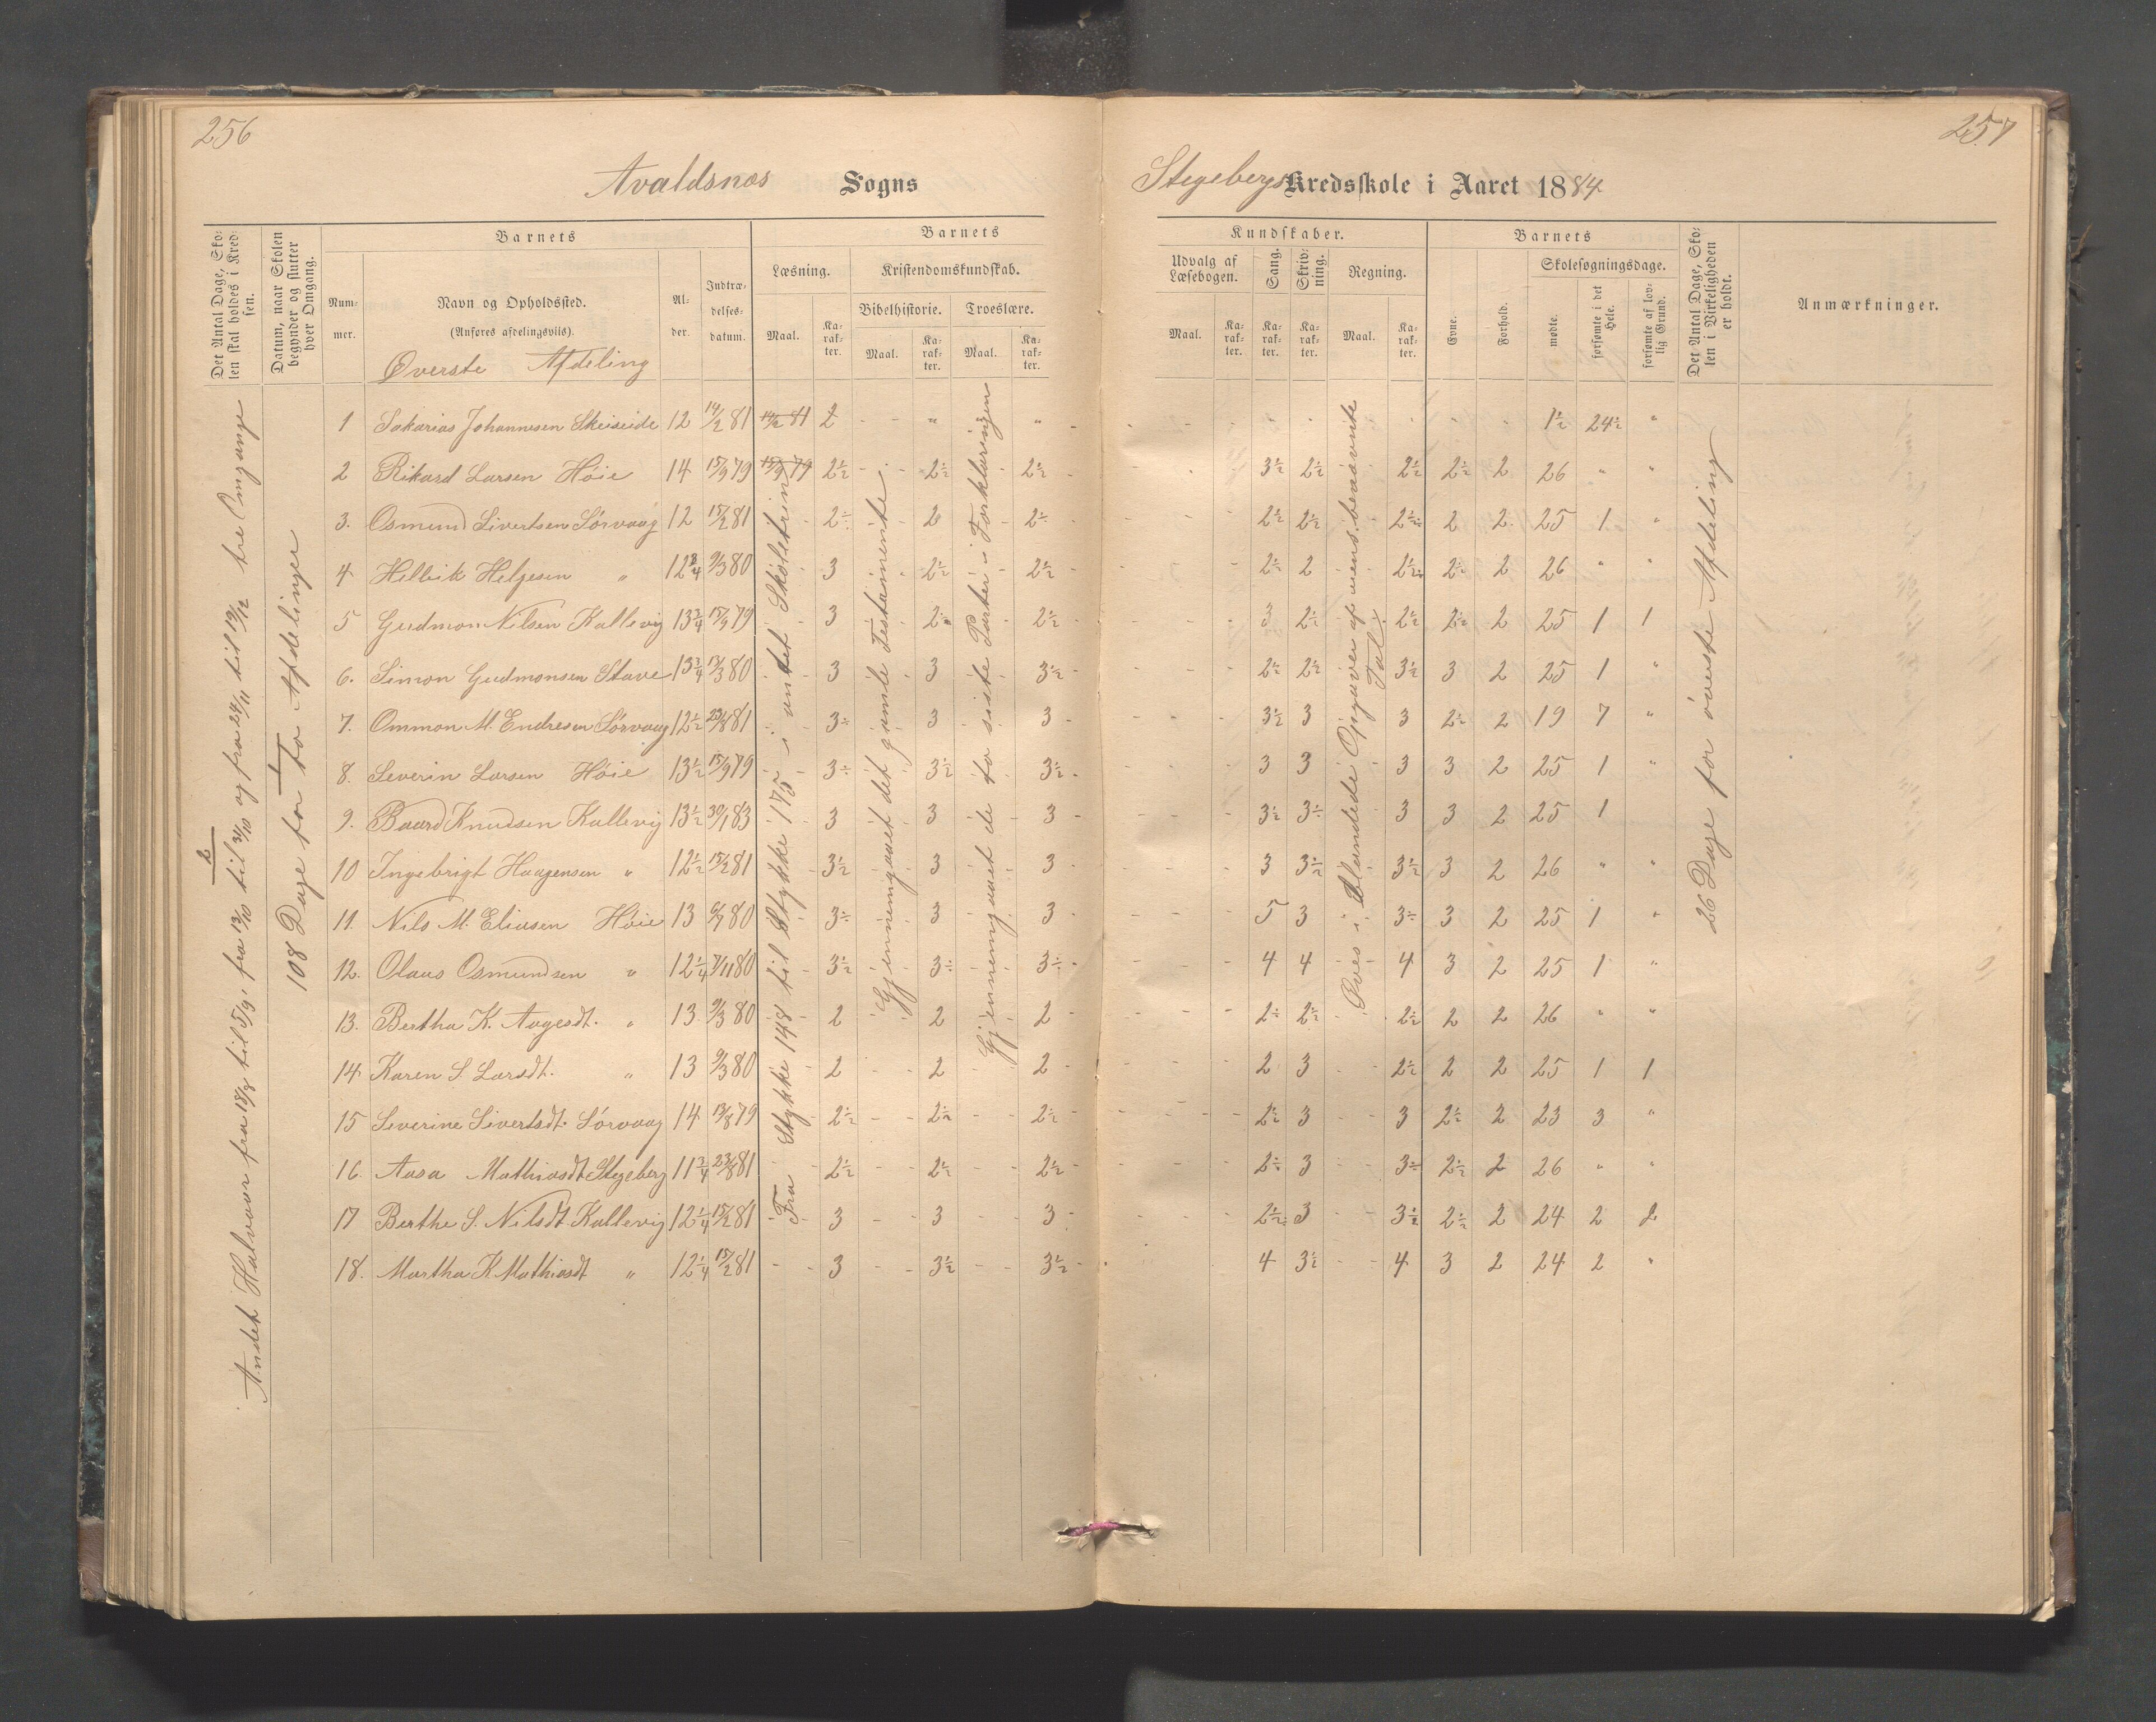 256
257
Avaldsnæs Sogns
Stegebergs Kredsskole i Aaret 1884
Det Antal Dage, Skolen skal holdes i Kredsen.
Datum, naar Skolen begynder og slutter hver Omgang.
Barnets
Nummer.
Navn og Opholdssted.
(Anføres afdelingsvils).
Øverste Afdeling
Alder.
Indtrædelsesdatum.
Barnets
Læsning.
Maal.
Karakter.
Kristendomskundskab.
Bibelhistorie.
Maal.
Karakter.
Troeslære.
Maal.
Karakter.
Kundskaber.
Udvalg af Læsebogen.
Maal.
Karakter.
Sang.
Karakter.
Skrivning.
Karakter.
Regning.
Maal.
Karakter.
Barnets
Evne.
Forhold.
Skolesøgningsdage.
mødte.
forsømte i det Hele.
forsømte af lovlig Grund.
Det Antal Dage, Skolen i Virkeligheden er holdt.
Anmærkninger.
Andet Halvaar fra 18/8 til 5/9, fra 13/10 til 31/10 og fra 24/11 til 19/12 tre Omgange
108 Dage for to Afdelinger
Fra Stykke 148 til Stykke 175 i andet Skoletrin
Gjennemgaaet det gamle Testamente
Gjennemgaaet de to siste Parter i Forklaringen
Øves i blandede Opgaver af uens benævnte Tal.
26 Dage for øverste Afdeling
1 Sakarias Johannesen Skeiseide 12 14/2 81 14/2 81 2 - - " - " - - - - - - - - - - 1½ 24½ "
2 Rikard Larsen Høie 14 15/9 79 15/9 79 2½ 2½ 2½ 3½ 2½ 2½ 2½ 2 26 " "
3. Osmund Sivertsen Sørvaag 12 15/2 81 2÷ 2 2÷ 2½ 2½ 2½ 2 2 25 1 "
4. Helleik Helgesen " 12¾ 9/3 80 3 2½ 2½ 2÷ 2 2½ 2÷ 2 26 " "
5 Gudmon Nilsen Kallevig 13¾ 15/9 79 3 2÷ 2½ 3 2½ 2½ 2÷ 2 25 1 1
6. Simon Gudmonsen Stave 13¾ 13/3 80 3 3 3½ 2½ 2½ 3½ 3 2 25 1 "
7. Ommon M. Endresen Sørvaag 12½ 23/8 81 3÷ 3 3 3½ 3 3 2÷ 2 19 7 "
8. Severin Larsen Høie 13½ 15/9 79 3÷ 3½ 3½ 3 3 3 3 2 25 1 "
9. Baard Knudsen Kallevig 13½ 30/1 83 3 3 3 3½ 3÷ 3 3 2 25 1
10 Ingebrigt Haagensen " 12½ 15/2 81 3½ 3 3 3 3½ 3½ 3 2 26 " "
11. Nils M. Eliasen Høie 13 6/9 80 3÷ 3 3 5 3 3÷ 3 2 25 1 "
12. Olaus Osmundsen " 12¼ 7/11 80 3½ 3÷ 3÷ 4 4 4 3 2 25 1 "
13. Bertha K. Aagesdt. " 13 9/3 80 2 2 2 2÷ 2½ 2½ 2 2 26 " "
14. Karen S. Larsdt. " 13 9/3 80 2 2 2 2 3 2½ 2 2 25 1 1
15 Severine Sivertsdt. Sørvaag 14 13/8 79 2½ 2½ 2½ 2½ 3 3 2½ 2 23 3 "
16. Aasa Mathiasdt Stegeberg 11¾ 23/8 81 2½ 2½ 2½ 2÷ 3 3÷ 2½ 2 26 " "
17 Berthe S. Nilsdt. Kallevig 12¼ 15/2 81 3 3 3 2½ 3 3½ 2½ 2 24 2 2
18. Martha K Mathiasdt " 12¼ 15/2 81 3 3½ 3½ 4 3½ 4 3 2 24 2 "